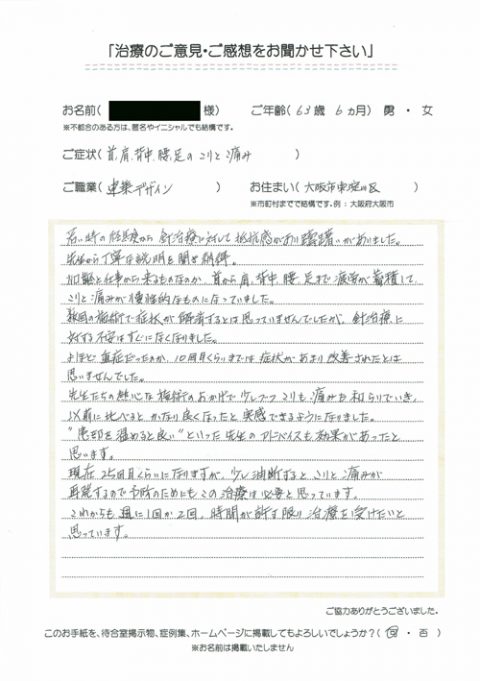 「治療のご意見・ご感想をお聞かせ下さい」
お名前( 様) ご年齢( 63歳 6ヵ月) 男 ・ 女
※不都合のある方は、匿名やイニシャルでも結構です。
ご症状( 首,肩,背中,腰,足のコリと痛み )
ご職業( 建築デザイン ) お住まい( 大阪市東淀川区 )
※市町村までで結構です。例:大阪府大阪市
若い時の経験から針治療に対して抵抗感があり躊躇いがありました。
先生から丁寧な説明を聞き納得。
加齢と仕事から来るものなのか、首から肩、背中、腰、足まで疲労が蓄積して、
コリと痛みが慢性的なものになっていました。
数回の施術で症状が解消するとは思っていませんでしたが、針治療に
対する不安はすぐになくなりました。
よほど重症だったのか、10回目くらいまでは症状があまり改善されたとは
思いませんでした。
先生たちの熱心な施術のおかげで少しづつコリも痛みも和らいでいき、
以前に比べると、かなり良くなったと実感できるようになりました。
"患部を温めると良い"といった先生のアドバイスも効果があったと
思います。
現在25回目くらいになりますが、少し油断するとコリと痛みが
再発するので予防のためにもこの治療は必要と思っています。
これからも週に1回か2回、時間が許す限り治療を受けたいと
思っています。
ご協力ありがとうございました。
このお手紙を、待合室掲示物、症例集、ホームページに掲載してもよろしいでしょうか?( 可 ・ 否 )
※お名前は掲載いたしません